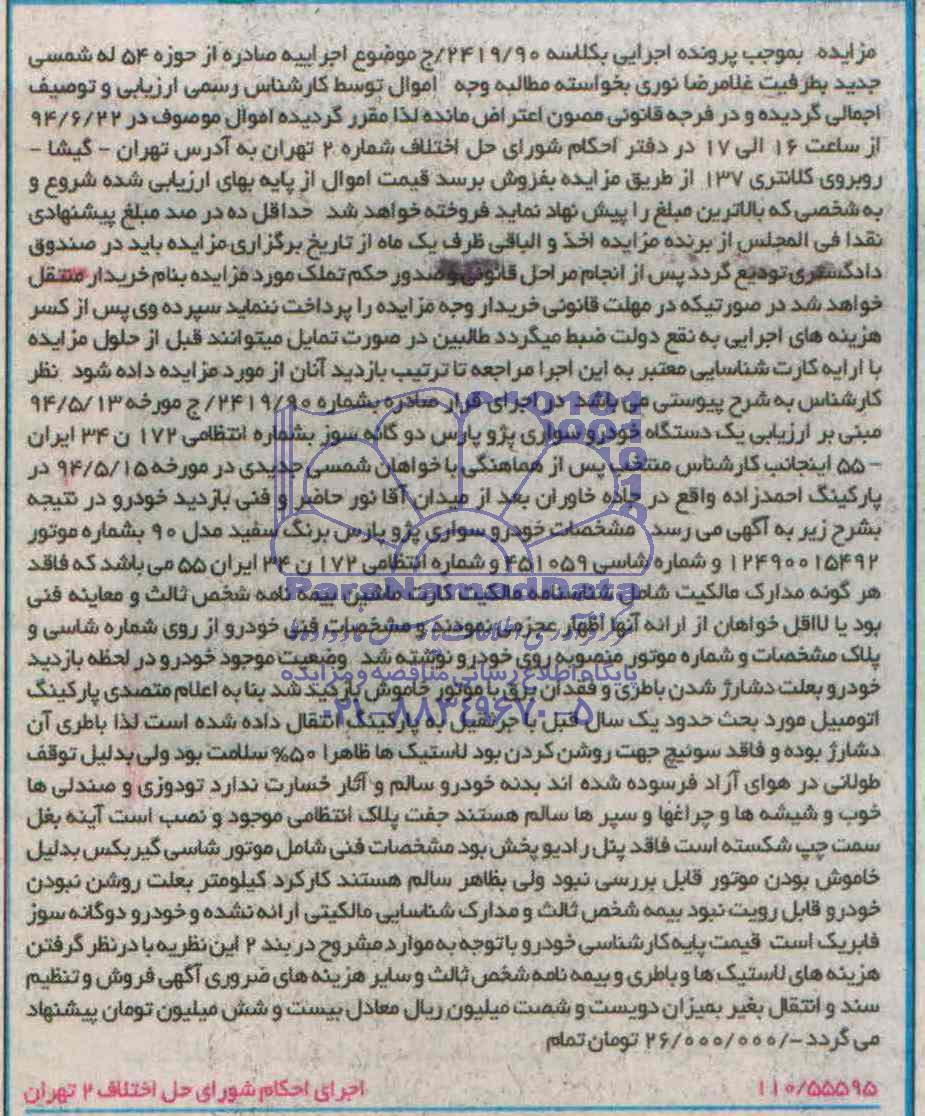 مزایده بموجب پرونده اجرایی بکلاسه ۲۴۱۹/۹۰/ج موضوع اجراییه صادره از حوزه ۵۴ له شمسی
جدید بطرفیت غلامرضا نوری بخواسته مطالبه وجه اموال توسط کارشناس رسمی ارزیابی و توصیف
اجمالی گردیده و در فرجه قانونی مصون اعتراض مانده لذا مقرر گردیده اموال موصوف در ۹۴/۶/۲۲
از ساعت ۱۶ الی ۱۷ در دفتر احکام شورای حل اختلاف شماره ۲ تهران به آدرس تهران - گیشا -
روبروی کلانتری ۱۳۷ از طریق مزایده بفروش برسد قیمت اموال از پایه بهای ارزیابی شده شروع و
به شخصی که بالاترین مبلغ را پیش نهاد نماید فروخته خواهد شد حداقل ده در صد مبلغ پیشنهادی
نقدا فی المجلس از برنده مزایده اخذ و الباقی ظرف یک ماه از تاریخ برگزاری مزایده باید در صندوق
دادگستری تودیع گردد پس از انجام مراحل قانونی و صدور حکم تملک مورد مزایده بنام خریدار منتقل
خواهد شد در صورتیکه در مهلت قانونی خریدار وجه مزایده را پرداخت ننماید سپرده وی پس از کسر
هزینه های اجرایی به نفع دولت ضبط میگردد طالبین در صورت تمایل میتوانند قبل از حلول مزایده
با ارایه کارت شناسایی معتبر به این اجرا مراجعه تا ترتیب بازدید آنان از مورد مزایده داده شود نظر
کارشناس به شرح پیوستی می باشد در اجرای قرار صادره بشماره ۲۴۱۹/۹۰/ ج مورخه ۹۴/۵/۱۳
مبنی بر ارزیابی یک دستگاه خودرو سواری پژو پارس دو گانه سوز بشماره انتظامی ۱۷۲ ن ۳۴ ایران
- ۵۵ اینجانب کارشناس منتخب پس از هماهنگی با خواهان شمسی جدیدی در مورخه ۹۴/۵/۱۵ در
پارکینگ احمدزاده واقع در جاده خاوران بعد از میدان آقا نور حاضر و فنی بازدید خودرو در نتیجه
بشرح زیر به آگهی می رسد مشخصات خودرو سواری پژو پارس برنگ سفید مدل ۹۰ بشماره موتور
۱۲۴۹۰۰۱۵۴۹۲ و شماره شاسی ۴۵۱۰۵۹ و شماره انتظامی ۱۷۲ ن ۳۴ ایران ۵۵ می باشد که فاقد
هر گونه مدارک مالکیت شامل شناسنامه مالکیت کارت ماشین بیمه نامه شخص ثالث و معاینه فنی
بود یا لااقل خواهان از ارائه آنها اظهار عجز می نمودند و مشخصات فنی خودرو از روی شماره شاسی و
پلاک مشخصات و شماره موتور منصوبه روی خودرو نوشته شد وضعیت موجود خودرو در لحظه بازدید
خودرو بعلت دشارژ شدن باطری و فقدان برق با موتور خاموش بازدید شد بنا به اعلام متصدی پارکینگ
اتومبیل مورد بحث حدود یک سال قبل با جرثقیل به پارکینگ انتقال داده شده است لذا باطری آن
دشارژ بوده و فاقد سوئیچ جهت روشن کردن بود لاستیک ها ظاهرا ۵۰% سلامت بود ولی بدلیل توقف
طولانی در هوای آزاد فرسوده شده اند بدنه خودرو سالم و آثار خسارت ندارد تودوزی و صندلی ها
خوب و شیشه ها و چراغها و سپر ها سالم هستند جفت پلاک انتظامی موجود و نصب است آینه بغل
سمت چپ شکسته است فاقد پنل رادیو پخش بود مشخصات فنی شامل موتور شاسی گیربکس بدلیل
خاموش بودن موتور قابل بررسی نبود ولی بظاهر سالم هستند کارکرد کیلومتر بعلت روشن نبودن
خودرو قابل رویت نبود بیمه شخص ثالث و مدارک شناسایی مالکیتی ارائه نشده و خودرو دوگانه سوز
فابریک است قیمت پایه کارشناسی خودرو با توجه به موارد مشروح در بند ۲ این نظریه با در نظر گرفتن
هزینه های لاستیک ها و باطری و بیمه نامه شخص ثالث و سایر هزینه های ضروری آگهی فروش و تنظیم
سند و انتقال بغیر بمیزان دویست و شصت میلیون ریال معادل بیست و شش میلیون تومان پیشنهاد
می گردد -/۲۶/۰۰۰/۰۰۰ تومان تمام
۱۱۰/۵۵۵۹۵ اجرای احکام شورای حل اختلاف ۲ تهران
ParsNamadData
پایگاه اطلاع رسانی مناقصه و مزایده
۰۲۱-۸۸۳۴۹۶۷۰-۵